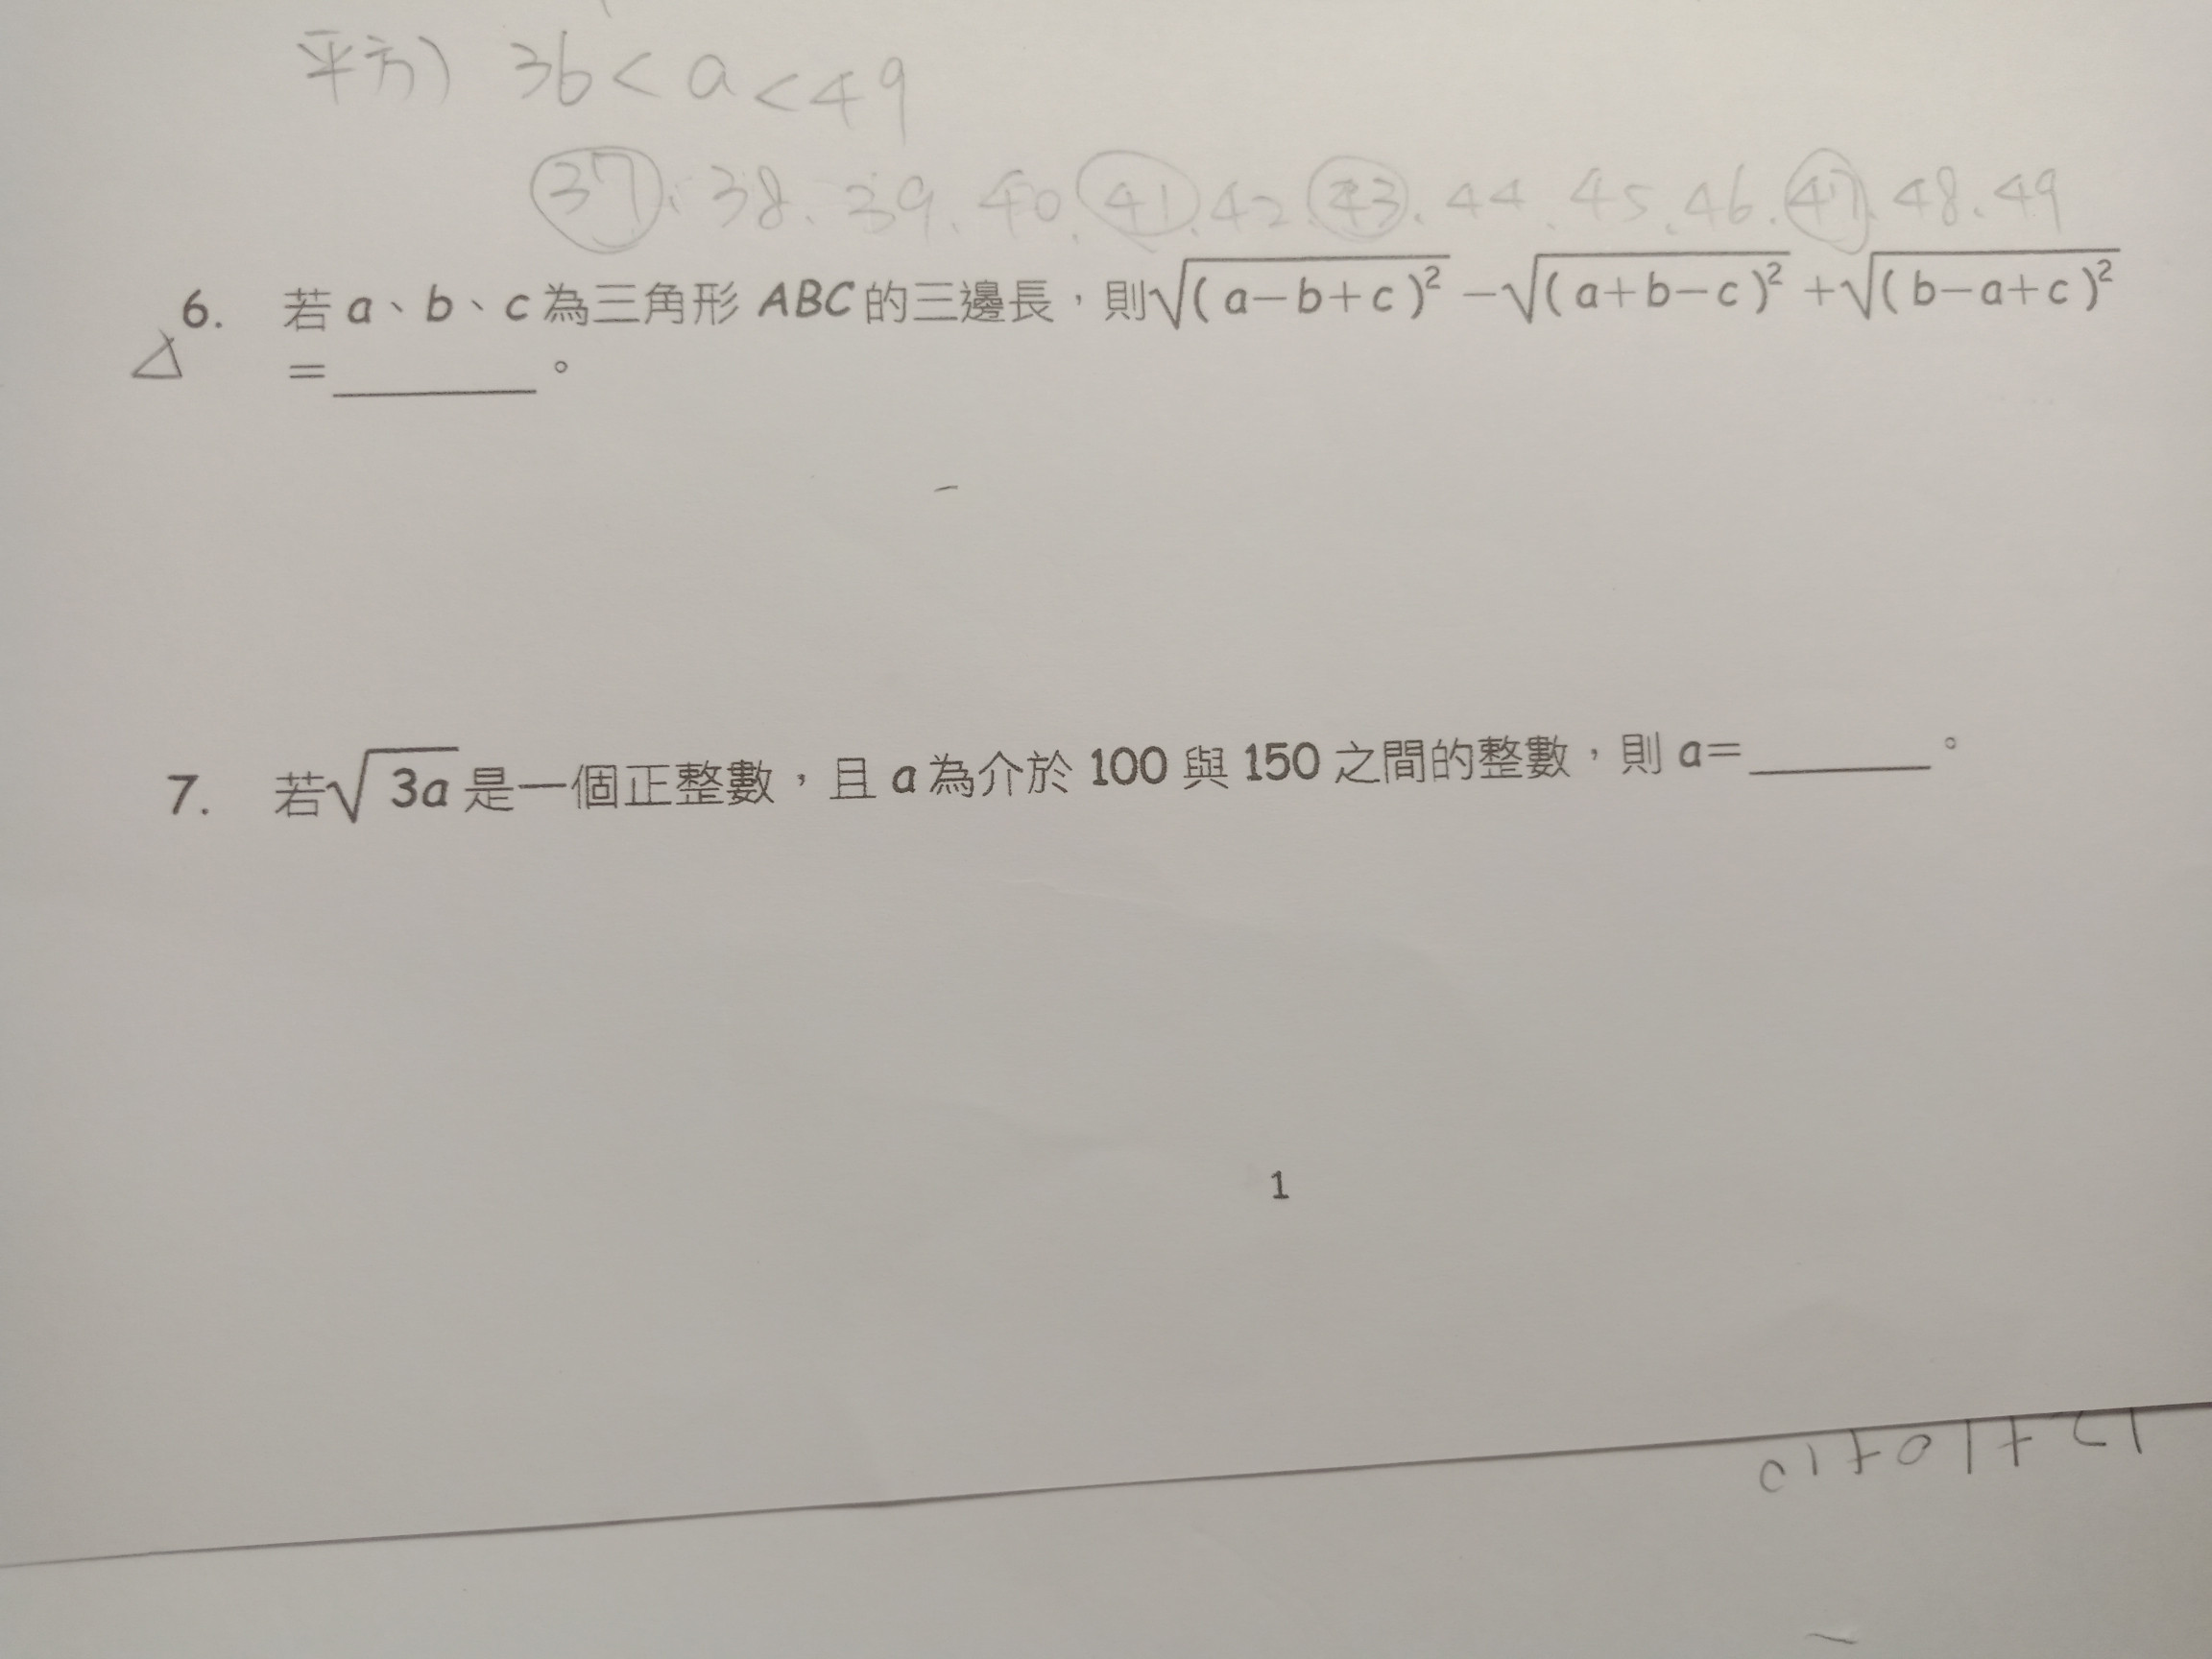 平方) 36 < a < 49
37、38、39、40、41、42、43、44、45、46、47、48、49
6. 若 a、b、c 為三角形 ABC 的三邊長，則√(a−b+c)² −√(a+b−c)² +√(b−a+c)²
△ =______。
7. 若√3a 是一個正整數，且 a 為介於 100 與 150 之間的整數，則 a=______。
1